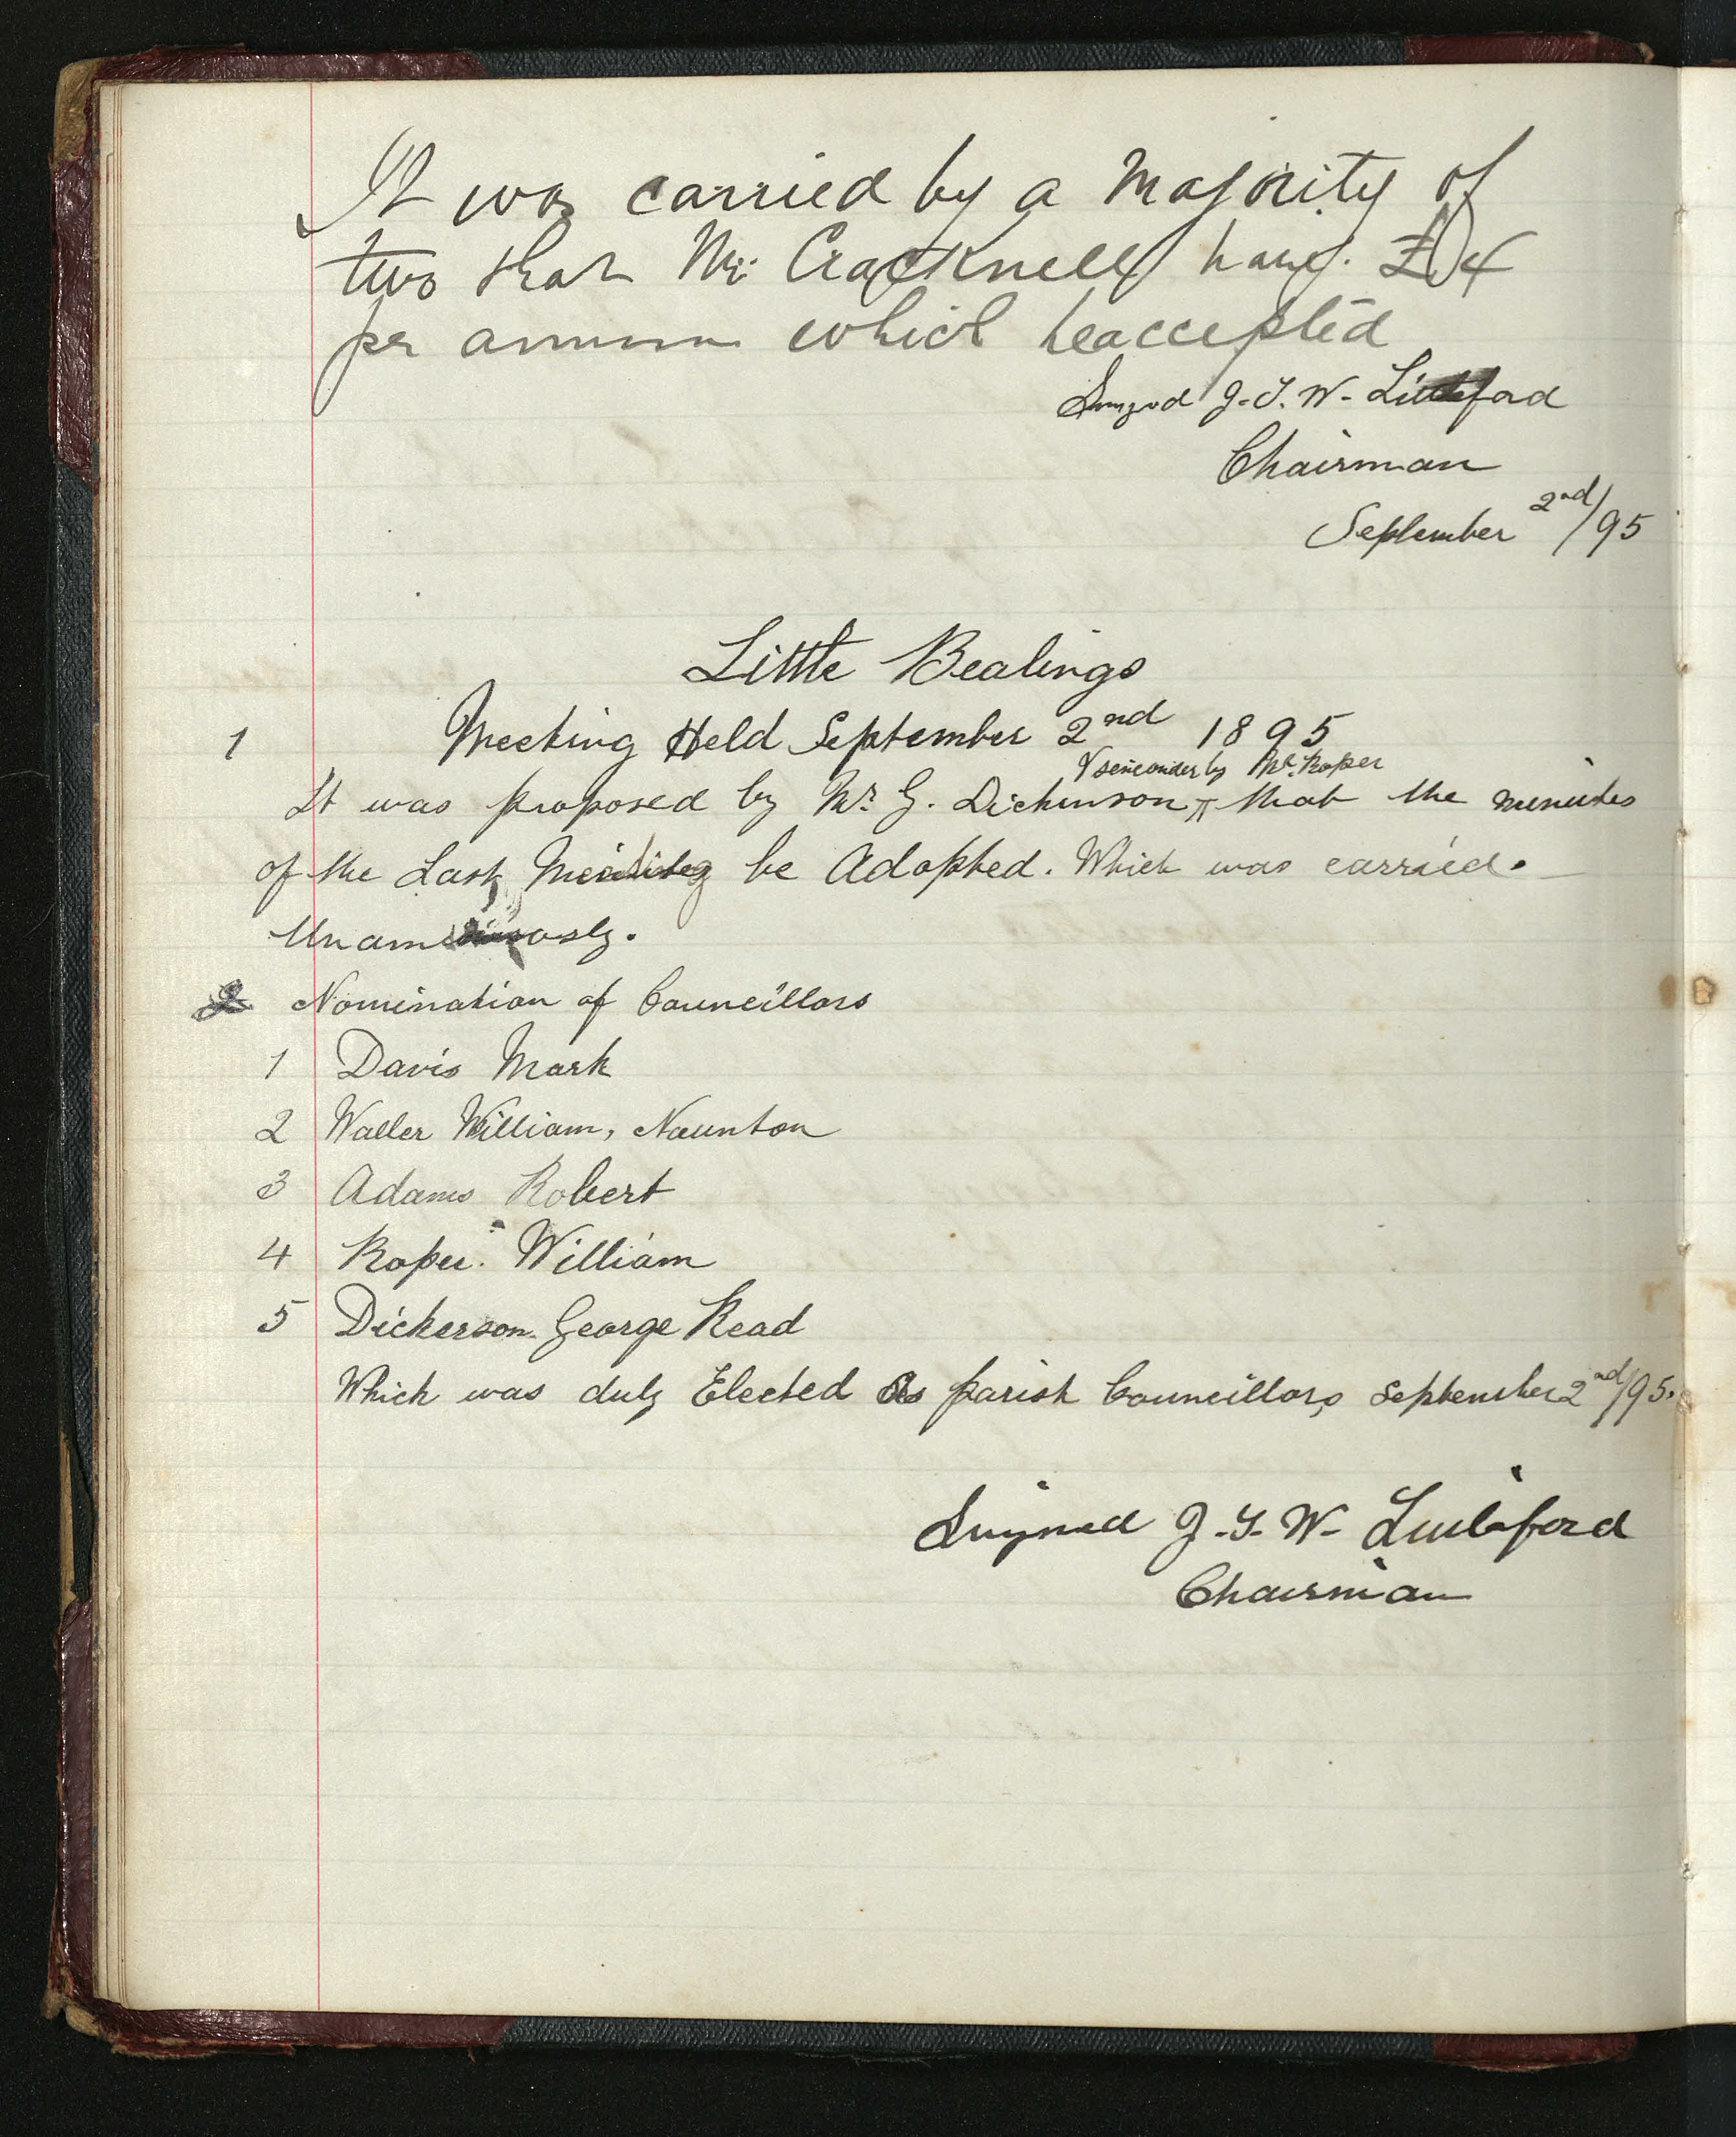 It was carried by a Majority of
two that Mr Cracknell have £4
per annum which heaccepted
J. W.
Chairman
September 2nd/95
Little Bealings
1 Meeting Held September 2nd 1895
& by Mr. Roper
It was proposed by Mr G. Dickinson that the minutes
of the Last be Adopted. Which was carried.
2 Nomination of Councillors
1 Davis Mark
2 Waller William, Naunton
3 Adams Robert
4 Roper. William
5 Dickerson. George Read
Which was duly Elected as parish Councillors September 2nd/95.
J. W.
Chairman